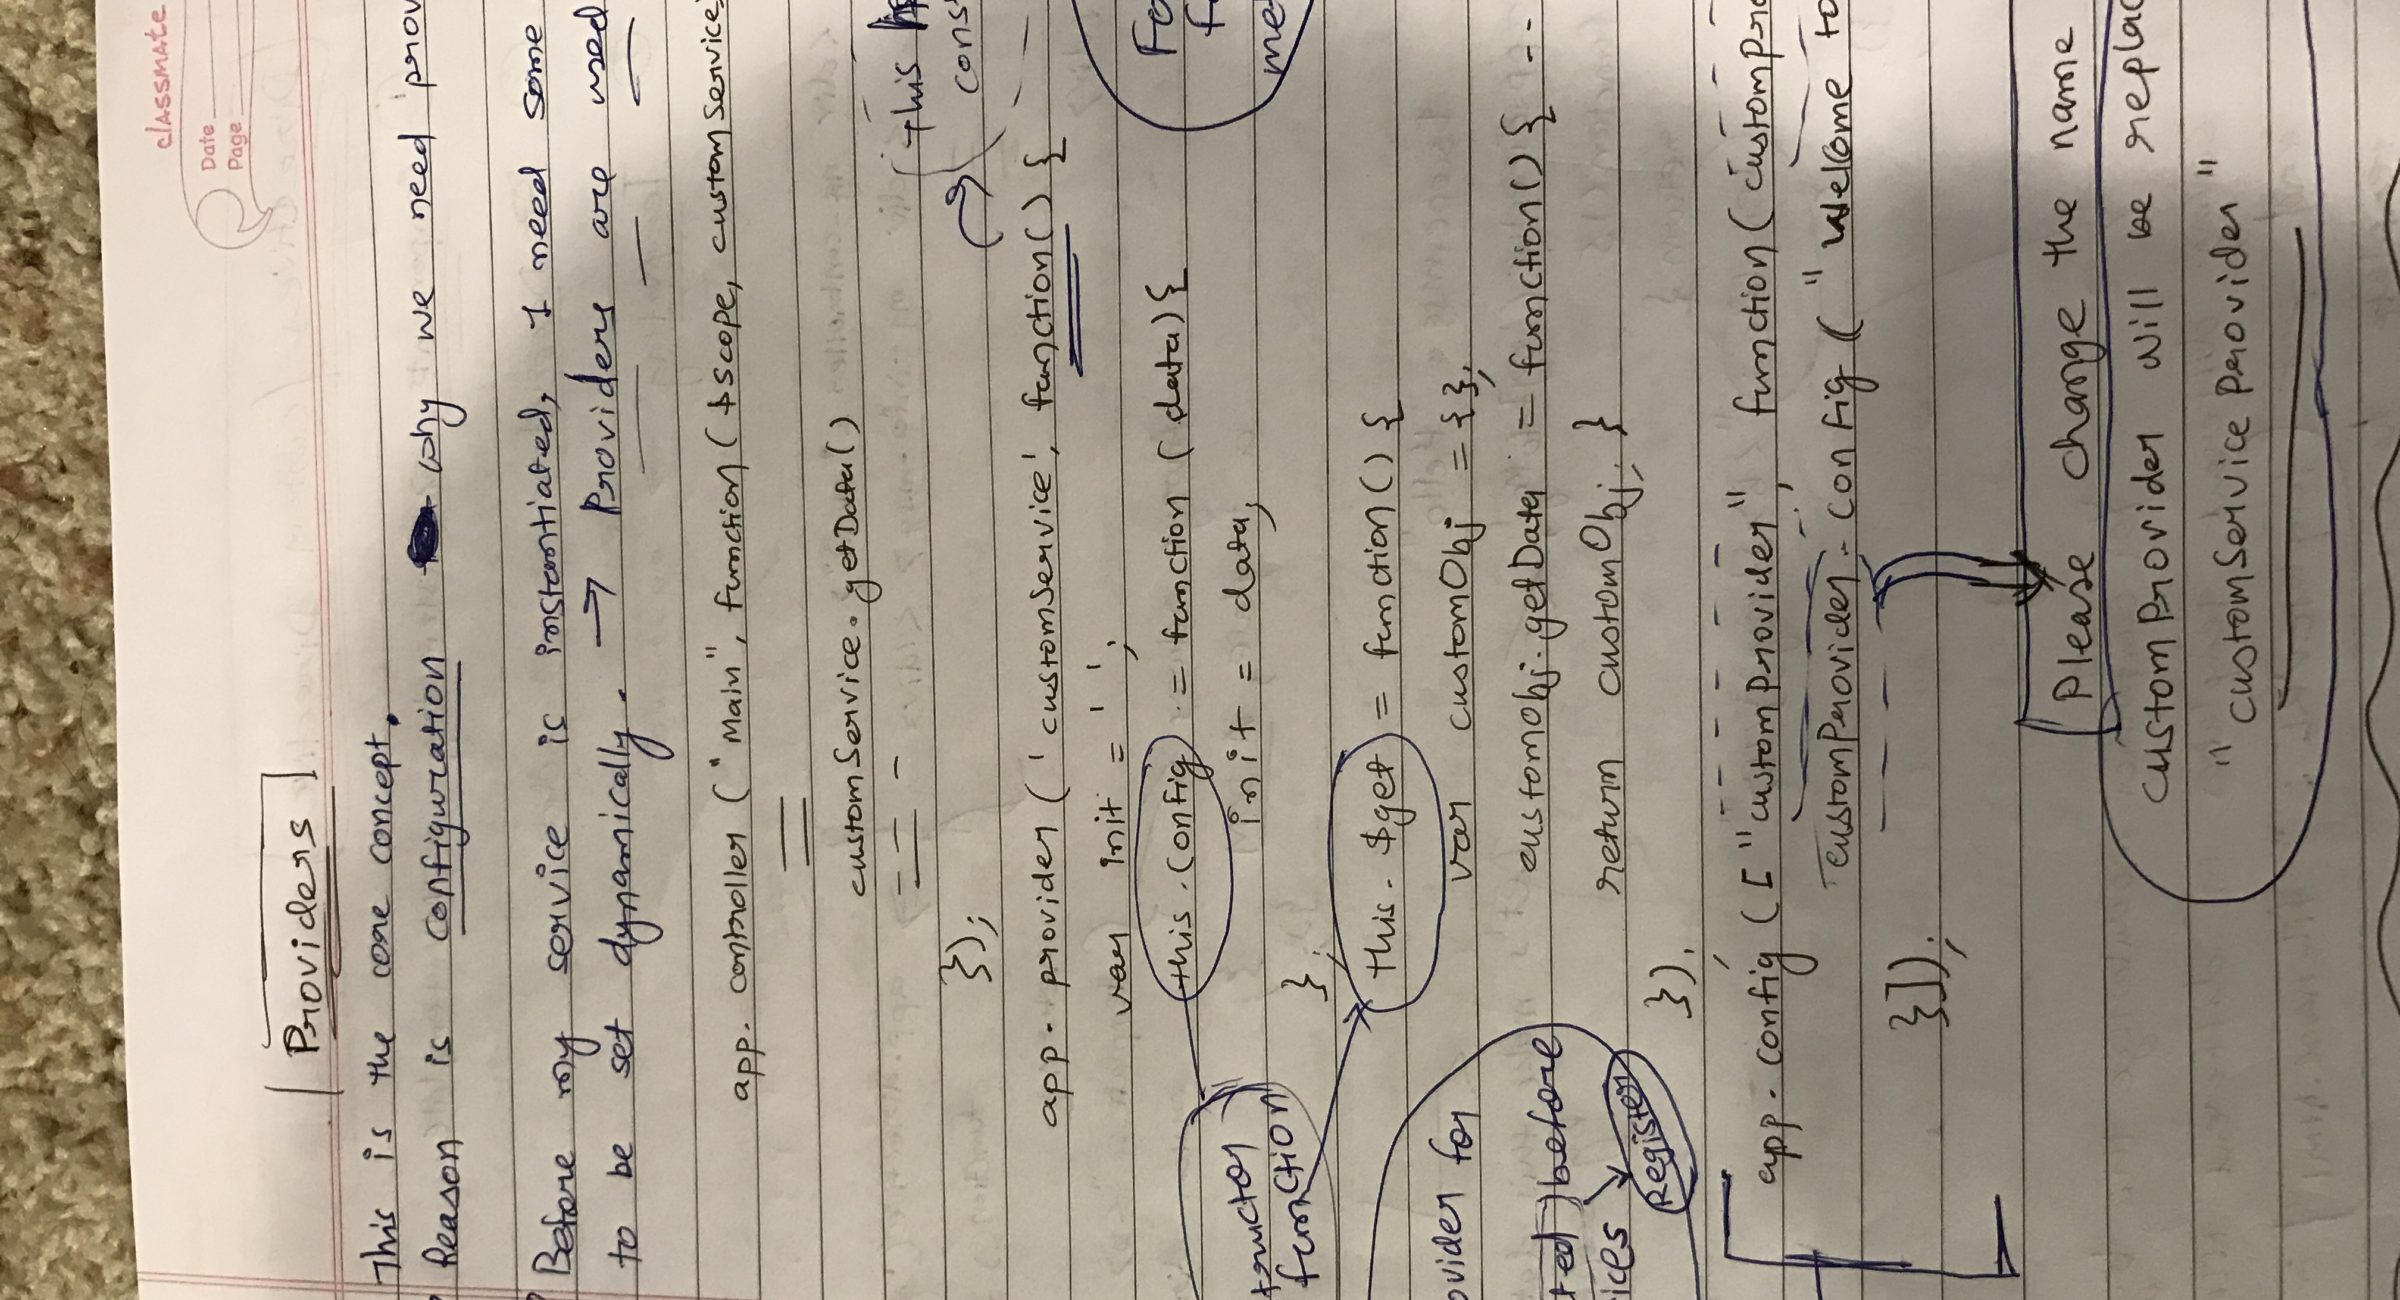 classmate
Date
Page
Providers
This is the core concept.
Reason is configuration why we need prov
Before my service is instantiated, I need some
to be set dynamically. → Providers are used
app.controller ("Main", function($scope, customService
customService.getData()
});
{this
cons
app.provider ('customService', function() {
var init = ' ';
this.config = function (data) {
init = data;
};
this.$get = function() {
var customObj = {};
customObj.getData = function() { --
return customObj; }
});
tructor
function
ovider for
ted) before
ices
Register
app.config (["customProvider", function(customPro
customProvider.config ("welcome to
}]);
Please change the name
customProvider will be replac
"customServiceProvider"